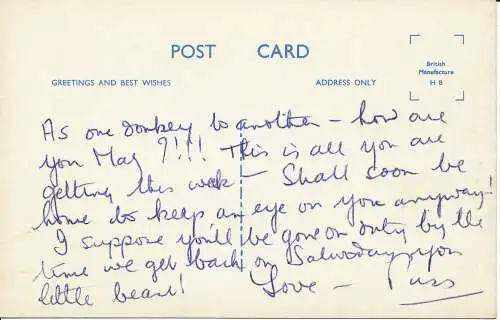 POST CARD
British
Manufacture
H B
GREETINGS AND BEST WISHES ADDRESS ONLY
As one donkey to another – how are
you Mag ?!!! This is all you are
getting this week – Shall soon be
home to keep an eye on you anyway!
I suppose you'll be gone on duty by the
time we get back on Saturday you
little beast! Love –